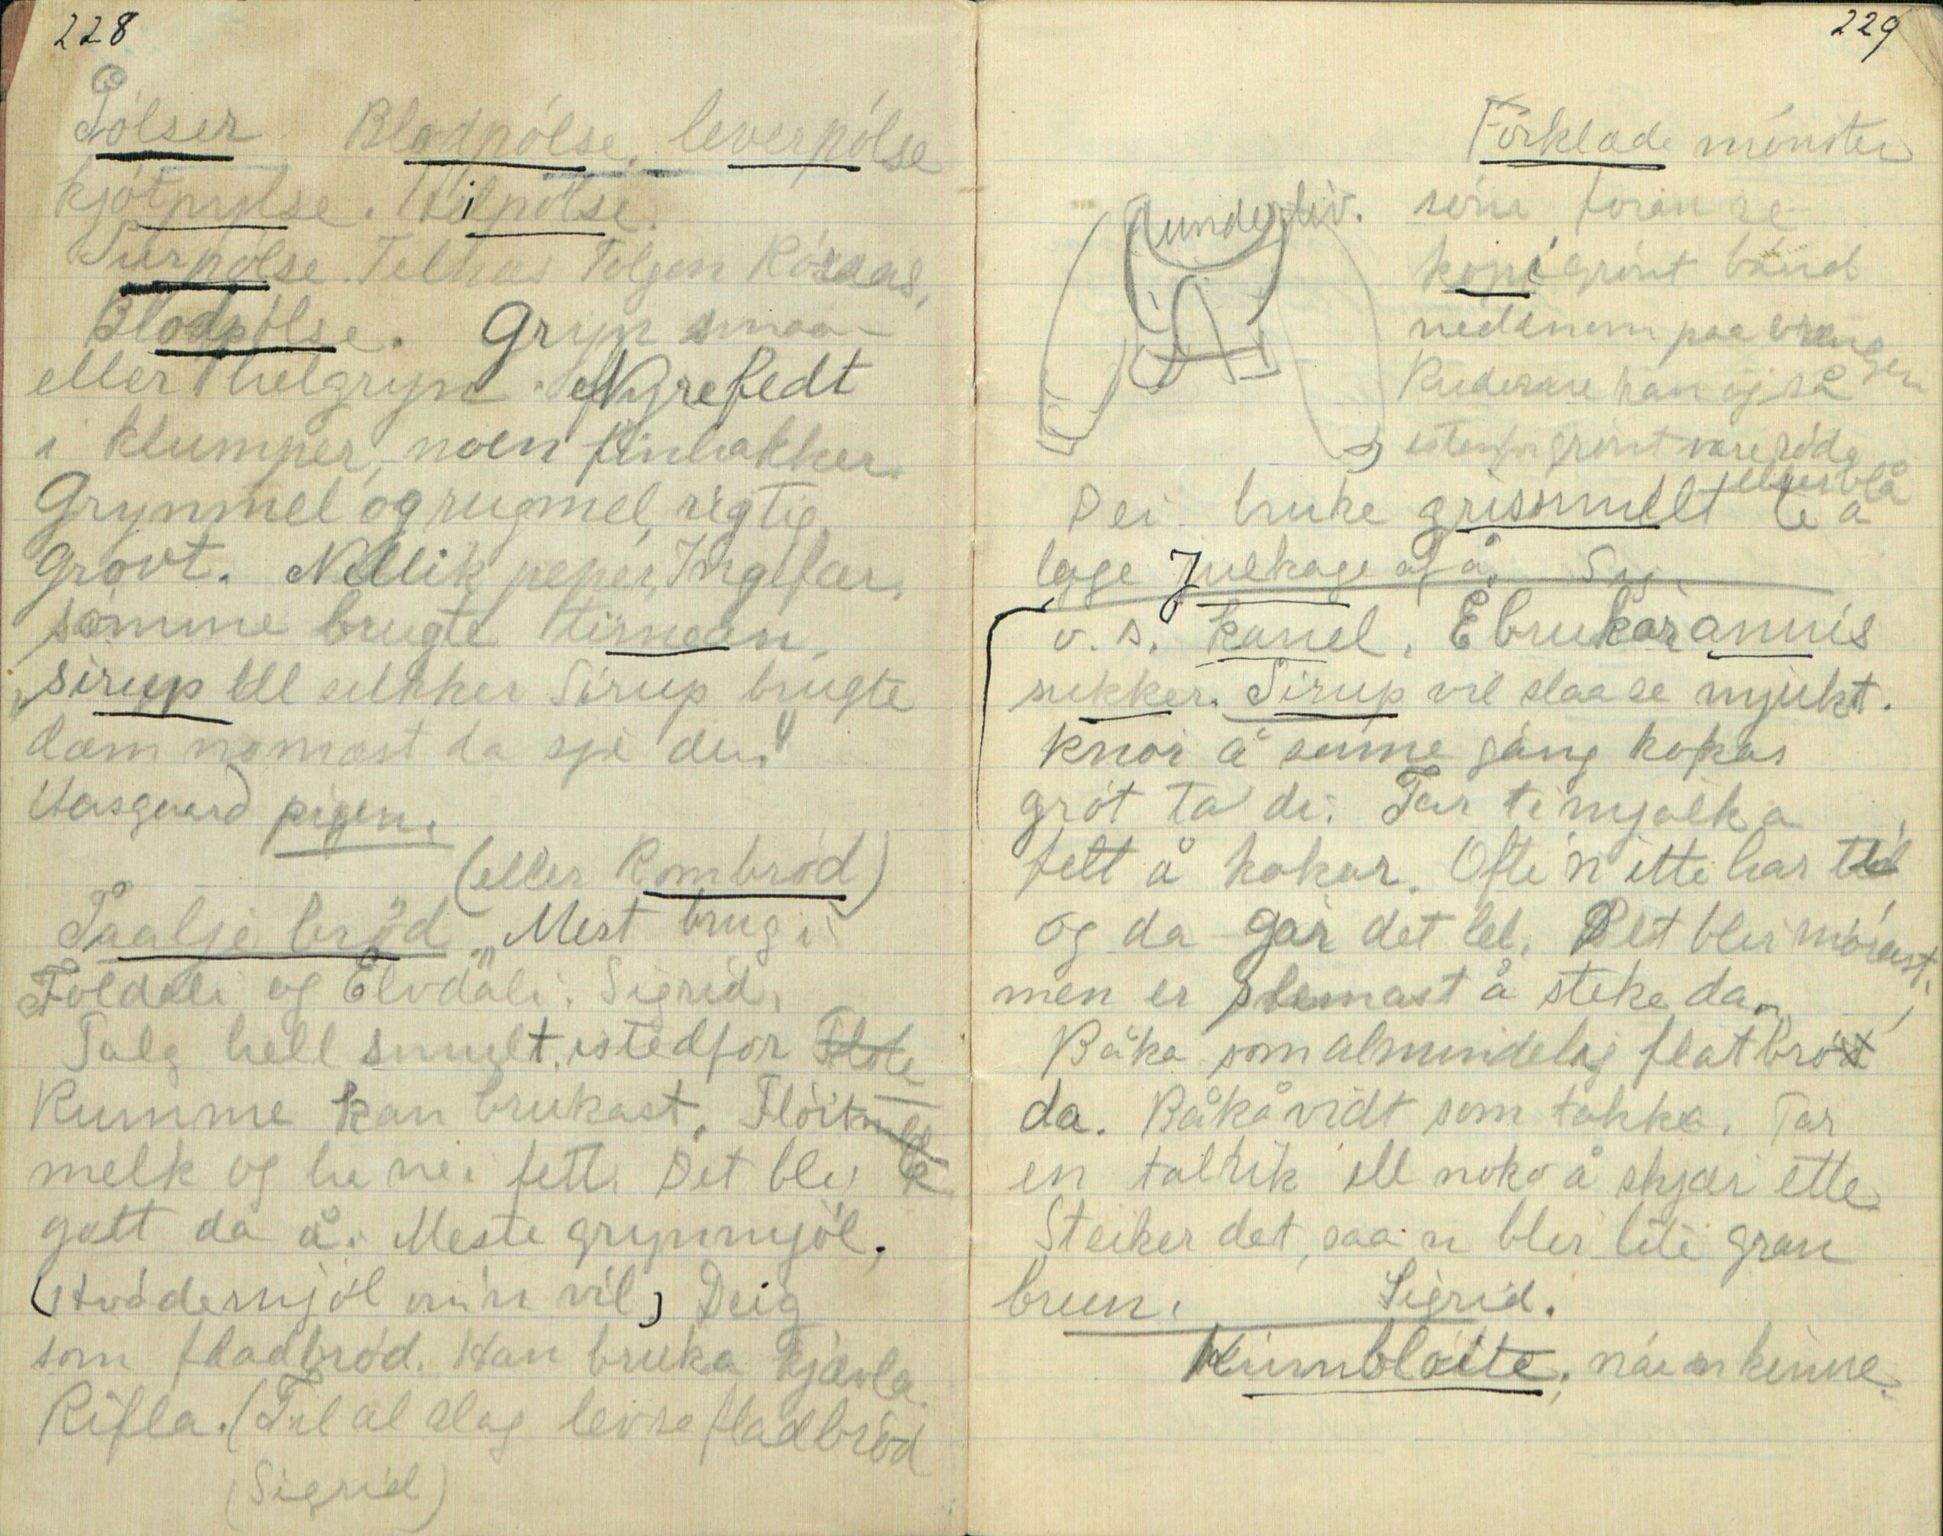 228
Pólser Blodpólse. leverpólse
kjótpylse.
Turpólse. Telhas Tolgen Róraas,
Blodpólse. Gryn smaa-
eller helgryn. Nyrefedt
i klumper, noen finhakker.
Grynmel og rugmel, rigtig
Grovt. Nellik peper, Ingefær,
somme brugte timian,
sirup ell sukker Sirup brugte
dæm nomast da sje du!
Vasgaard pigen.
(eller Rombród)
Taalje bród „ Mest brug i
Foldali og Elvdali. Sigrid.
Talg hell smult, istedfor Flóte
Rumme kan brukast. Flóit
melk og ha nei fett. Det bli
gott da å. Meste grynmjól.
(Hvódemjól om'n vil) Deig
som fladbród. Han bruka kjævla
Rifla. (Til al slag levse fladbród
(Sigrid)
229
Forklade mónster
underliv. som foran se
kopi grónt bånd
nedenom paa vrangen
Ruderne kan oj så
istenfor grónt være róde
eller blå
Dei bruke grissmult te å
lage Julkage af å. Sig.
v. s. kanel. E brukar annis
sukker. Sirup vil slaa se mjukt.
Knoi å somme gång kokas
gröt ta di. Tar ti mjólk a
fett å kokar. Ofte 'n itte har til
og da går det lel. Det bler mórast,
men er slemast å steke da.
Båka som almindelig flatbród
da. Båkå vidt som takka. Tar
en talrik ell noko å skjær ette
Steiker det, saa n bler lite gran
brun. Sigrid.
Kinnblóite, når n kinne.